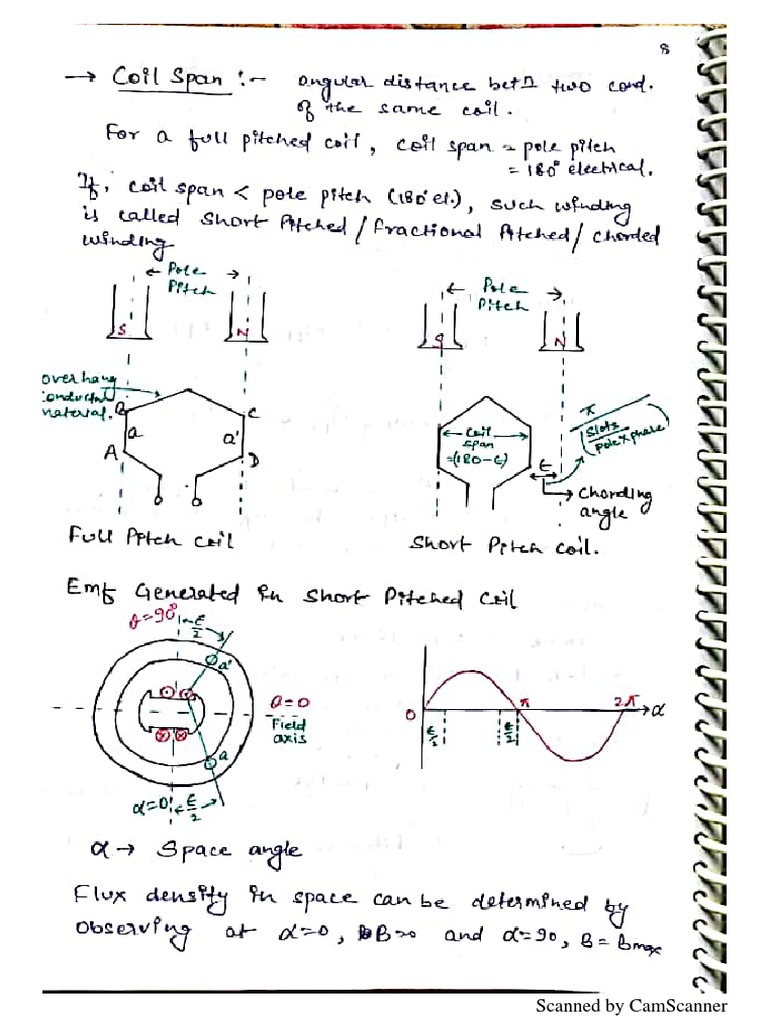 8
→ Coil Span :- angular distance betn two cond.
of the same coil.
For a full pitched coil, coil span = pole pitch
= 180° electrical.
If, coil span < pole pitch (180° el.), such winding
is called Short Pitched / fractional Pitched / chorded
winding
← Pole →
Pitch
← Pole →
Pitch
S
N
S
N
overhang
conductor
material.
B
C
a
a'
A
D
← coil →
span
=(180-ϵ)
π
(slots
pole×phase)
ϵ
→ Chording
angle
Full Pitch coil
Short Pitch coil.
Emf Generated in Short Pitched Coil
θ=90°
ϵ/2
a'
θ=0
Field
axis
a
α=0
ϵ/2
0
π
2π
α
ϵ/2
ϵ/2
α → Space angle
Flux density in space can be determined by
Observing at α=0, B=0 and α=90, B = Bmax
Scanned by CamScanner